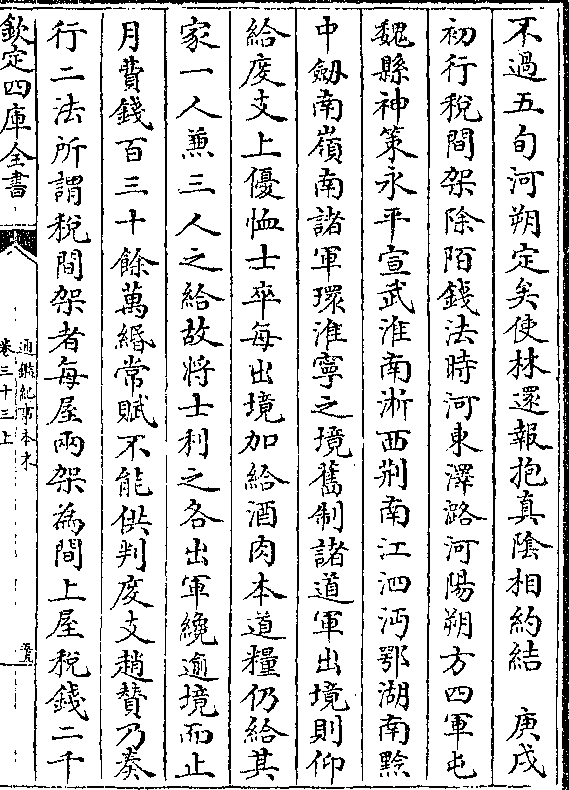 不過五旬河朔定矣使林還報抱真隂相約結　庚戌
初行税間架除陌錢法時河東澤潞河陽朔方四軍屯
魏縣神策永平宣武淮南浙西荆南江泗沔鄂湖南黔
中劒南嶺南諸軍環淮寧之境舊制諸道軍出境則仰
給度支上優恤士卒每出境加給酒肉本道糧仍給其
家一人兼三人之給故將士利之各出軍纔逾境而止
月費錢百三十餘萬緡常賦不能供判度支趙贊乃奏
行二法所謂税間架者每屋兩架為間上屋税錢二千
欽定四庫全書
通鑑紀事本末
卷三十三上